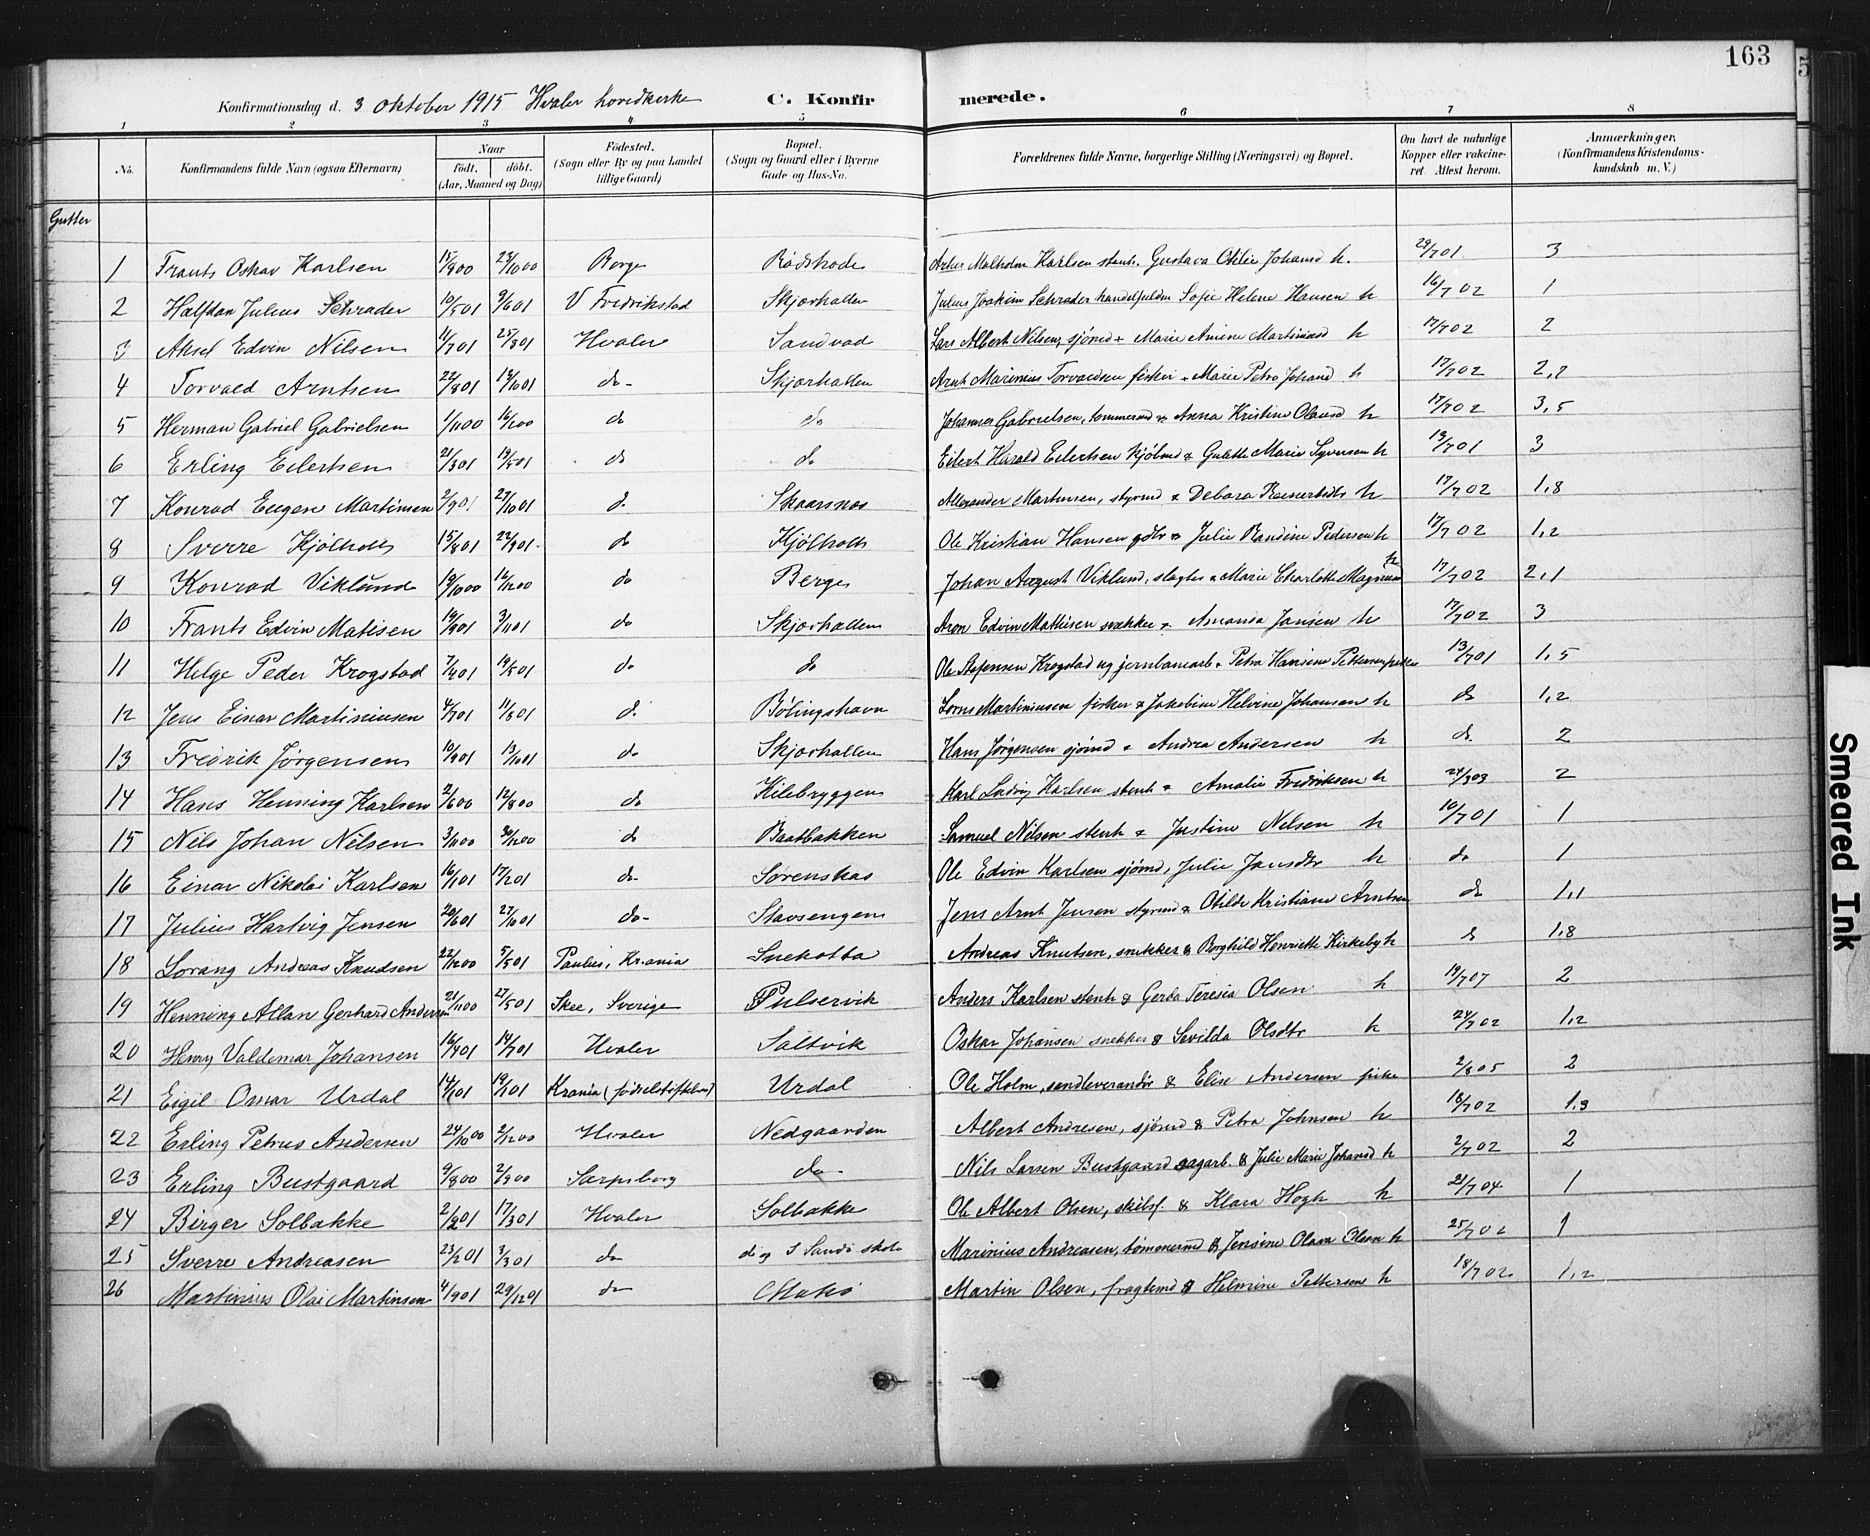 163
Konfirmationsdag d. 3 oktober 1915 Hvaler hovedkirke C. Konfirmerede.
1 2 3 4 5 6 7 8
No. Konfirmandens fulde Navn (ogsaa Efternavn) Naar født. døbt. (Aar, Maaned og Dag) Fødested. (Sogn eller By og paa Landet tillige Gaard) Bopæl. (Sogn og Gaard eller i Byerne Gade og Hus-No. Forældrenes fulde Navne, borgerlige Stilling (Næringsvei) og Bopæl. Om havt de naturlige Kopper eller vakcineret. Attest herom. Anmærkninger. (Konfirmandens Kristendomskundskab m. V.)
Gutter
1 Frants Oskar Karlsen 15/900 28/1000 Borge Rødshode Malholm Karlsen stenh. Gustava Otilie Johansd h. 29/701 3
2 Halfdan Julius Schrader 10/501 9/601 V Fredrikstad Skjærhallen Julius Joakim Schrader Sofie Helene Hansen h 16/702 1
3 Aksel Edvin Nilsen 11/701 25/801 Hvaler Sandvad Lars Albert Nilsen, sjømd + Marie Martinusd h 17/702 2
4 Torvald Arntsen 22/801 do- Skjærhallen Arnt Torvaldsen fisker + Marie Petra Johansd h 17/702 2,2
5 Herman Gabriel Gabrielsen 1/1100 16/1200 do do Johannes Gabrielsen, tømmermd & Anna Kristine Olausd h 17/702 3,5
6 Erling Eilertsen 21/301 19/501 do do Eilert Harald Eilertsen & Marie Syversen h 13/701 3
7 Konrad Eugen Martinsen 2/901 27/1001 do Skaarsnes Alexander Martinsen, styrmd & Debora h 17/702 1,8
8 Sverre Kjølholt 15/801 22/901 do Kjølholt Ole Kristian Hansen & Julie Randine Pedersen h 17/702 1,2
9 Konrad Viklund 19/1000 16/1200 do Berge Johan August Viklund, slagter & Marie Charlotte h 17/702 2,1
10 Frants Edvin Matisen 19/901 3/1101 do Skjærhallen Aron Edvin Mathisen snekker & Amanda Jansen h 17/702 3
11 Helge Peder Krogstad 7/401 19/501 do do Ole Krogstad ug jernbanearb & Petra Hansine Pettersen pike 13/701 1,5
12 Jens Einar Martiniusen 4/701 11/801 do Bølingshavn Martiniusen fisker & Jakobine Helvine Johansen h do 1,2
13 Fredrik Jørgensen 10/901 13/1001 do Skjærhallen Hans Jørgensen sjømd & Andrea Andersen h do 2
14 Hans Henning Karlsen 2/600 12/800 do Kilebryggen Karl Ludvig Karlsen stenh & Amalie Fredriksen h 24/303 2
15 Nils Johan Nilsen 3/1100 30/1200 do Baatbakken Samuel Nilsen stenh & Justine Nilsen h 10/701 1
16 Einar Nikolai Karlsen 16/101 17/201 do Sørenskas Ole Edvin Karlsen sjømd, Julie Jansdtr h do 1
17 Julius Hartvig Jensen 20/601 27/1001 do- Stavsengen Jens Arnt Jensen styrmd & Otilde Kristiane Arntsen do 1,1
18 Lorang Andreas Knudsen 22/1200 5/501 Paulus, Krania Snekotta Andreas Knutsen, snekker & Borghild Henriette Kirkeby h do 1,8
19 Henning Allan Gerhard Andersen 21/1100 27/501 Skee, Sverige Pulservik Anders Karlsen stenh & Gerda Teresia Olsen h 19/707 2
20 Henry Valdemar Johansen 16/401 14/701 Hvaler Saltvik Oskar Johansen snekker & Sevilda Olsdtr h 24/702 1,2
21 Eigil Omar Urdal 14/101 Krania (fødselsstiftelsen) Urdal Ole Holm, sandleverandør & Elise Andersen pike 2/805 2
22 Erling Petrus Andersen 24/1000 2/1200 Hvaler Nedgaarden Albert Andresen, sjømd & Petra Johnsen h 18/702 1,3
23 Erling Bustgaard 9/800 2/900 Sarpsborg do- Nils Larsen Bustgaard sagarb. & Julie Marie Johansd h 2/702 2
24 Birger Solbakke 2/201 17/301 Hvaler Solbakke Ole Albert Olsen, skibsf. & Klara Hogh h 21/704 1
25 Sverre Andreasen 23/201 3/301 do Sandø skole Marinius Andreasen, tømmermd & Jensine Olava Olsen h 25/702 1
26 Martinius Olai Martinsen 4/901 29/1201 do Martin Olsen, fragtemd & Helmine Pettersen h 18/702 1,2
Smeared Ink